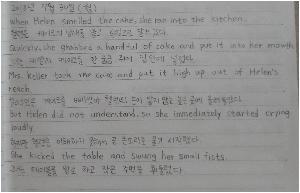 2018년 7월 30일 (월)
When Helen smelled the cake, she ran into the kitchen.
헬렌은 케이크의 냄새를 맡고 부엌으로 달려갔다.
Quickly, she grabbed a handful of cake and put it into her mouth.
그녀는 재빨리 케이크를 한 움큼 쥐어 입안에 넣었다.
Mrs. Keller took the cake and put it high up out of Helen's
reach.
케이크를 헬렌의 손이 닿지 않는 높은 곳에 올려놓았다.
But Helen did not understand, so she immediately started crying
loudly.
하지만 헬렌은 이해하지 못해서 큰 소리로 울기 시작했다.
She kicked the table and swung her small fists.
그녀는 테이블을 발로 차고 작은 주먹을 휘둘렀다.